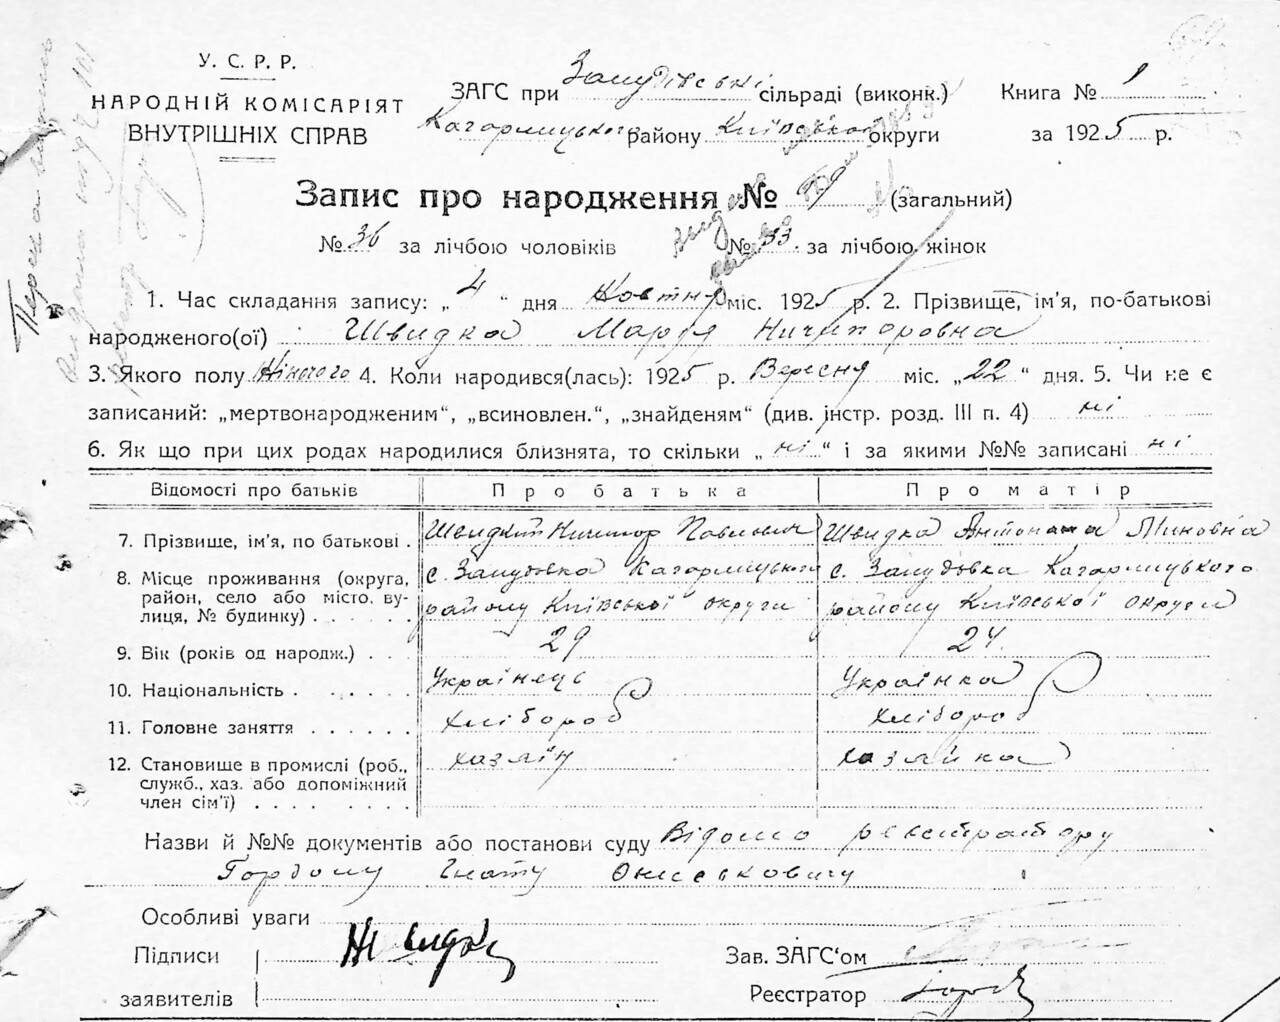 У. С. Р. Р.
НАРОДНІЙ КОМІСАРІЯТ
ВНУТРІШНІХ СПРАВ
ЗАГС при сільраді (виконк.)
Кагарлицького району Київської округи
Книга № 1
за 1925 р.
Запис про народження № 69 (загальний)
№ 36 за лічбою чоловіків № 33 за лічбою жінок
1. Час складання запису: „ 4 “ дня Жовтня міс. 1925 р. 2. Прізвище, ім’я, по-батькові
народженого(ої) Швидка Марія Ничипоровна
3. Якого полу Жіночого 4. Коли народився(лась): 1925 р. Вересня міс. „22“ дня. 5. Чи не є
записаний: „мертвонародженим“, „всиновлен.“, „знайденям“ (див. інстр. розд. III п. 4) ні
6. Як що при цих родах народилися близнята, то скільки „ ні “ і за якими №№ записані ні
Відомості про батьків Про батька Про матір
7. Прізвище, ім’я, по батькові . Швидкий Ничипор Павлович Швидка Антонина
8. Місце проживання (округа, с. Кагарлицького с. Кагарлицького
район, село або місто, ву- району Київської округи району Київської округи
лиця, № будинку) . . . . . .
9. Вік (років од народж.) . . . 29 24
10. Національність . . . . . . Українець Українка
11. Головне заняття . . . . . . хлібороб хлібороб
12. Становище в промислі (роб., хазяїн хазяйка
служб., хаз. або допоміжний
член сім’ї) . . . . . . . .
Назви й №№ документів або постанови суду Відомо реєстратору
Гордому Гнату
Особливі уваги
Підписи
заявителів
Зав. ЗАГС‘ом
Реєстратор